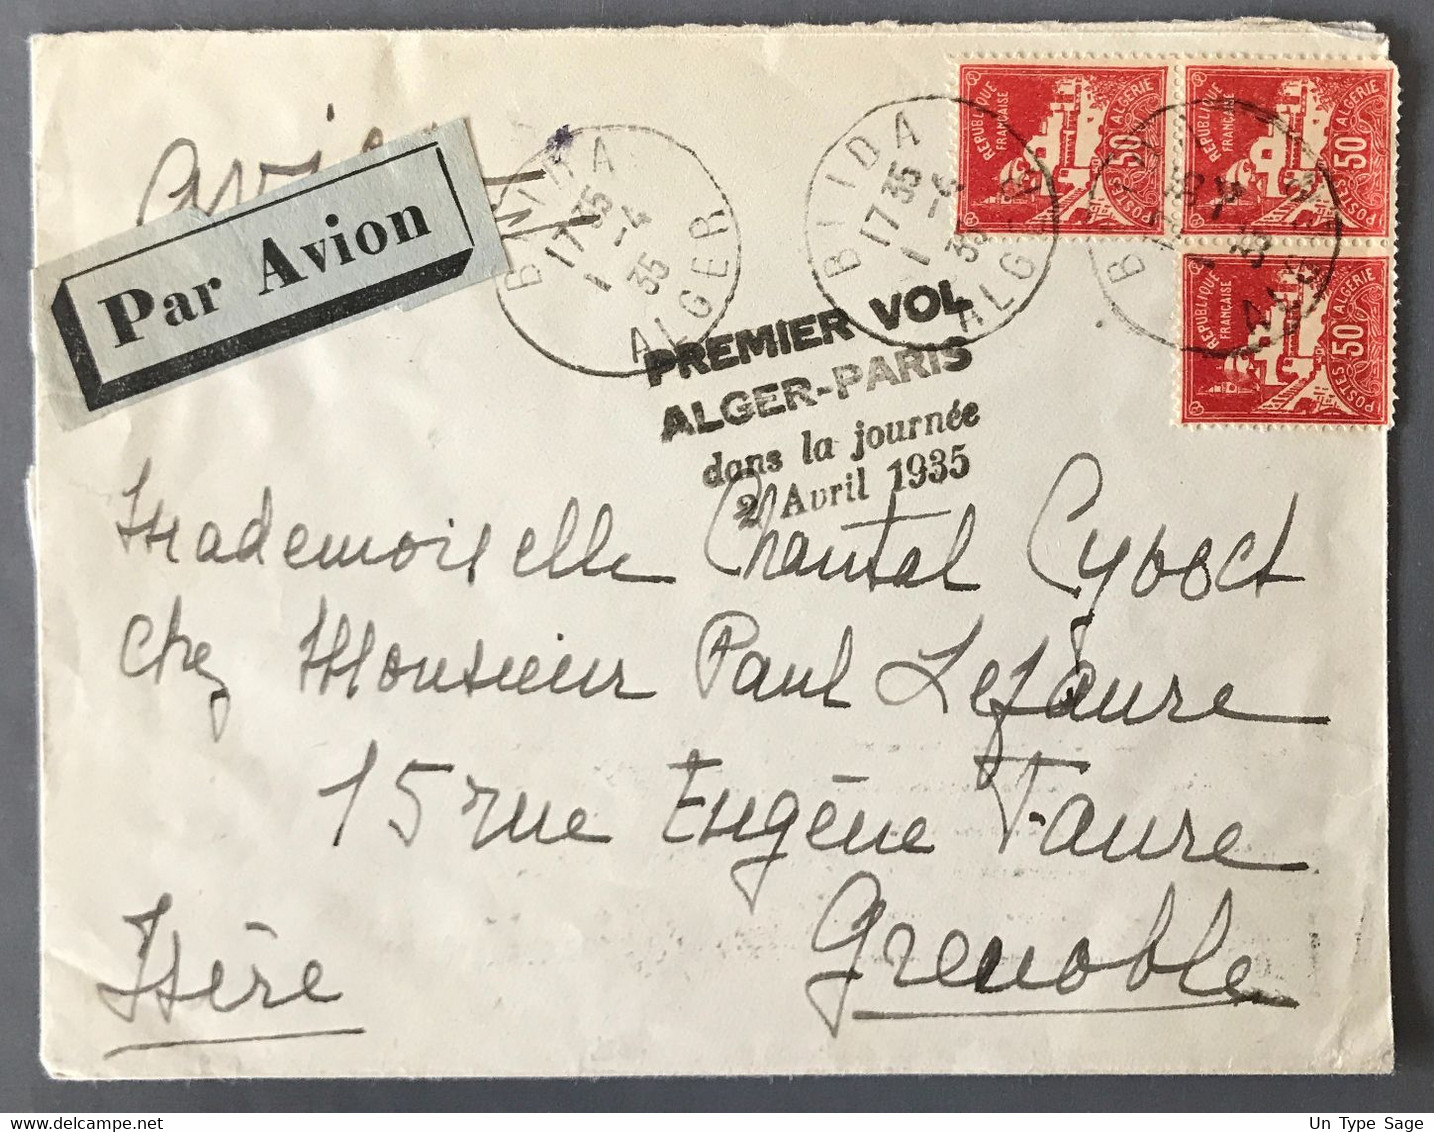 Avion
Par Avion
BLIDA
17 35
1 -4
35
ALGER
BLIDA
17 35
1 -4
35
ALGER
BLIDA
ALGER
REPUBLIQUE FRANÇAISE
50
POSTES ALGERIE
REPUBLIQUE FRANÇAISE
50
POSTES ALGERIE
REPUBLIQUE FRANÇAISE
50
POSTES ALGERIE
PREMIER VOL
ALGER-PARIS
dans la journée
2 Avril 1935
Mademoiselle Chantal
chez Monsieur Paul Lefaure
15 rue Eugène Faure
Grenoble
Isère
Un Type Sage